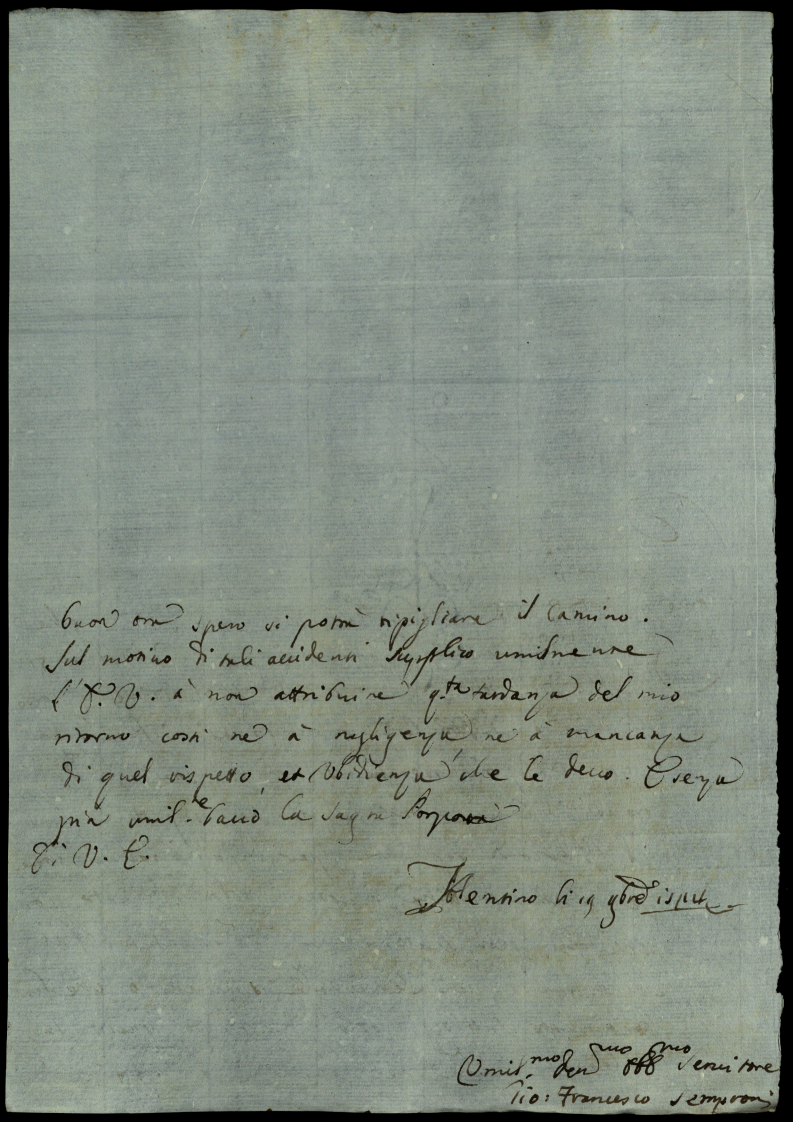 buon ora spero si potrà ripigliare il camino.
Sul motivo di tali accidenti supplico umilmente
l'E. V. à non attribuire q.ta tardanza del mio
ritorno costì ne à negligenza, ne à mancanza
di quel rispetto, et Ubidienza, che le devo. E senza
più umil.e bacio la Sagra Porpora
Di V. E.
li 19 9bre
Umil.mo dev.mo obb.mo Servitore
Gio: Francesco Semproni